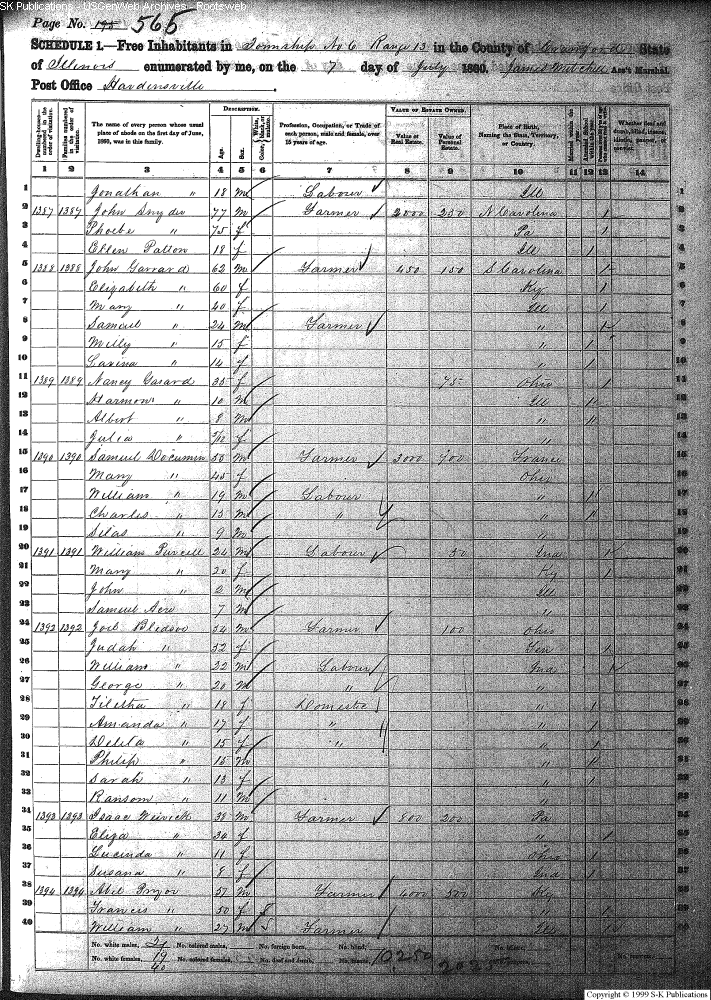 SK Publications - USGenWeb Archives - Rootsweb
Page No. 195 565
SCHEDULE 1.—Free Inhabitants in Township No 6 Range 13 in the County of Crawford State
of Illinois enumerated by me, on the 7 day of July 1860. James Mitchell Ass't Marshal.
Post Office Hardinsville
Dwelling-houses—numbered in the order of visitation. Families numbered in the order of visitation. The name of every person whose usual place of abode on the first day of June, 1860, was in this family. DESCRIPTION. Age. Sex. Color, White, black, or mulatto. Profession, Occupation, or Trade of each person, male and female, over 15 years of age. VALUE OF ESTATE OWNED. Value of Real Estate. Value of Personal Estate. Place of Birth, Naming the State, Territory, or Country. Married within the year. Attended School within the year. Whether deaf and dumb, blind, insane, idiotic, pauper, or convict.
1 2 3 4 5 6 7 8 9 10 11 12 13 14
1 Jonathan " 18 m Labour Ill 1
2 1387 1387 John Snyder 77 m Farmer 2000 250 N Carolina 1 2
3 Phoebe " 75 f Pa 1 3
4 Ellen Patton 18 f Ill 1 4
5 1388 1388 John Garrard 62 m Farmer 450 150 S Carolina 1 5
6 Elizabeth " 60 f Ky 1 6
7 Mary " 40 f Ill 1 7
8 Samuel " 24 m Farmer " 1 8
9 Milly " 15 f " 1 9
10 Lavina " 14 f " 1 10
11 1389 1389 Nancy Garard 35 f 75 Ohio 1 11
12 Harmon " 10 m Ill 1 12
13 Albert " 8 m " 1 13
14 Julia " f " 14
15 1390 1390 Samuel 50 m Farmer 3000 700 France 15
16 Mary " 45 f Ohio 16
17 William " 19 m Labour " 1 17
18 Charles " 13 m " " 1 18
19 Silas " 9 m " 19
20 1391 1391 William Purcell 24 m Labour 50 Ind 1 20
21 Mary " 20 f Ky 1 21
22 John " 2 m Ill 22
23 Samuel Acre 7 m " 23
24 1392 1392 Joel Bledsoe 54 m Farmer 100 Ohio 24
25 Judah " 52 f Ten 1 25
26 William " 22 m Labour Ind 1 26
27 George " 20 m " " 27
28 Tiletha " 18 f Domestic " 1 28
29 Amanda " 17 f " " 1 29
30 Delila " 15 f " " 1 30
31 Philip " 15 m " 1 31
32 Sarah " 13 f " 1 32
33 Ransom " 11 m " 33
34 1393 1393 Isaac 38 m Farmer 800 200 Pa 34
35 Eliza " 34 f " 1 35
36 Lucinda " 11 f Ohio 1 36
37 Susana " 8 f Ind 1 37
38 1394 1394 Abel Pryor 57 m Farmer 4000 500 Ky 38
39 Francis " 50 f " 1 39
40 William " 27 m Farmer Ill 40
No. white males, 21 No. colored males, No. foreign born, No. blind,
No. white females, 19 No. colored females, No. deaf and dumb, No. insane, 10250
40
Copyright © 1999 S-K Publications